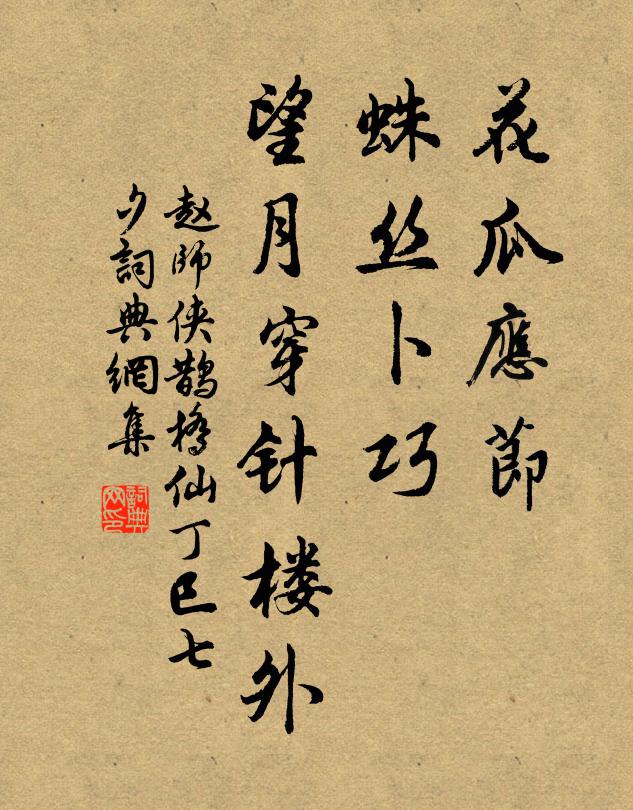 花瓜應節
蛛丝卜巧
望月穿针楼外
赵师侠鹊橋仙丁巳七
夕詞典網集
詞典
网印